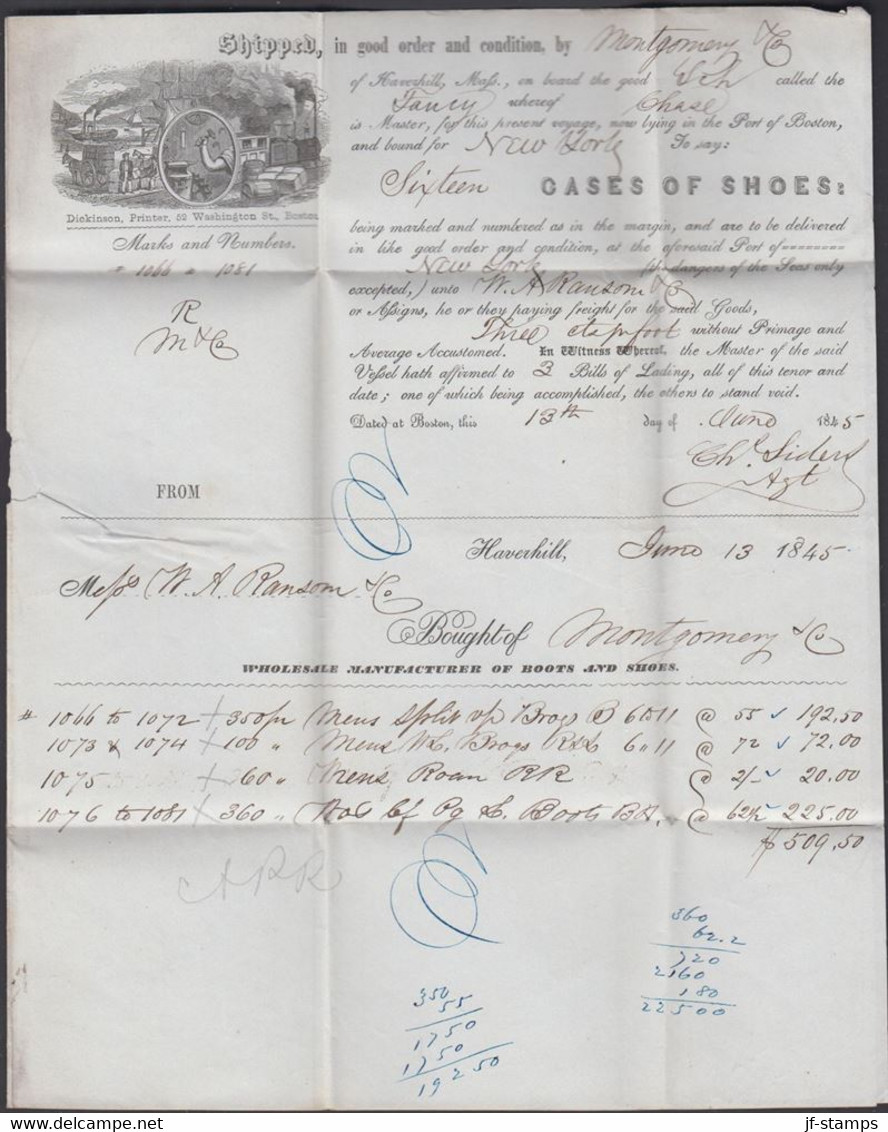 Shipped, in good order and condition, by Montgomery & Co
of Haverhill, Mass., on board the good Sch called the
Fancy whereof Chase
is Master, for this present voyage, now lying in the Port of Boston,
and bound for New York To say:
Sixteen CASES OF SHOES:
being marked and numbered as in the margin, and are to be delivered
in like good order and condition, at the aforesaid Port of
New York (the dangers of the Seas only
excepted,) unto W. A. Ransom & Co
or Assigns, he or they paying freight for the said Goods,
Three cts pr foot without Primage and
Average Accustomed. In Witness Whereof, the Master of the said
Vessel hath affirmed to 3 Bills of Lading, all of this tenor and
date; one of which being accomplished, the others to stand void.
Dated at Boston, this 13th day of June 1845
Agt
Dickinson, Printer, 52 Washington St., Boston
Marks and Numbers.
" 1066 " 1081
R
M & Co
FROM
Haverhill, June 13 1845
Messrs W. A. Ransom & Co
Bought of Montgomery & Co
WHOLESALE MANUFACTURER OF BOOTS AND SHOES.
# 1066 to 1072 350 pr Mens Split up Brogs B 6 to 11 @ 55 192.50
1073 & 1074 100 " Mens Brogs 6 " 11 @ 72 72.00
1075 60 " Mens Roan RR @ 2/- 20.00
1076 to 1081 360 " Pg Boots @ 62½ 225.00
$509.50
360
62.2
720
2160
180
22500
350
55
1750
1750
19250
jf-stamps